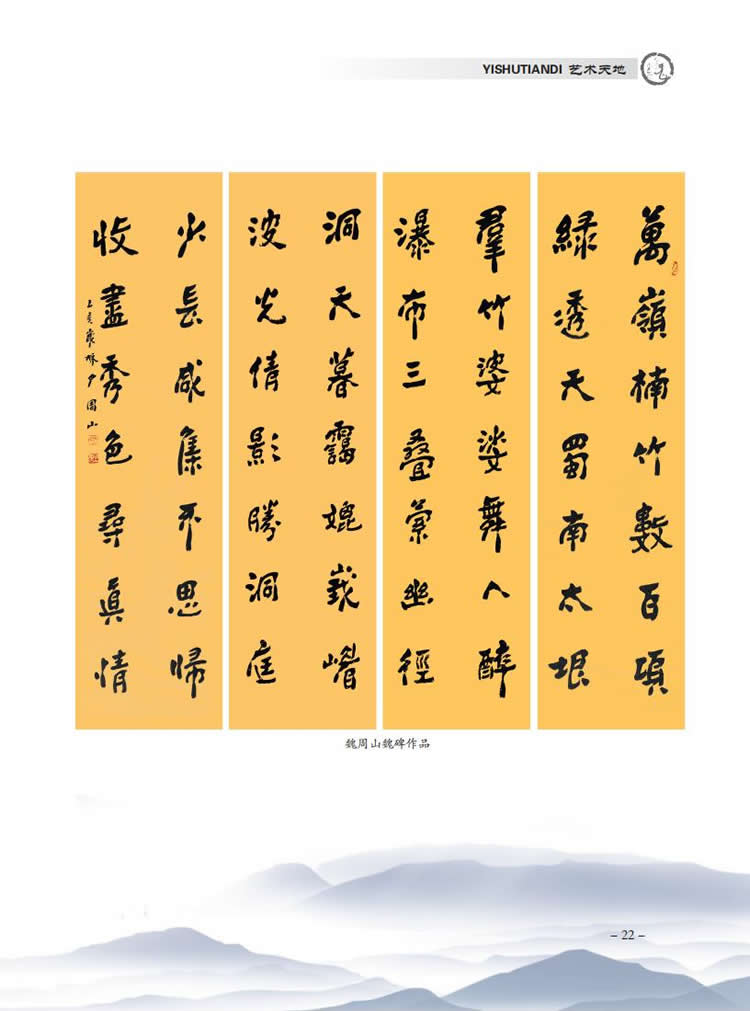 YISHUTIANDI 艺术天地
萬嶺楠竹數百項
緑透天蜀南太垠
羣竹婆娑舞人醉
瀑布三叠縈幽徑
洞天暮靄媲峩嵴
波光倩影勝洞庭
火長咸集不思歸
收盡秀色尋真情
周山
魏周山魏碑作品
- 22 -